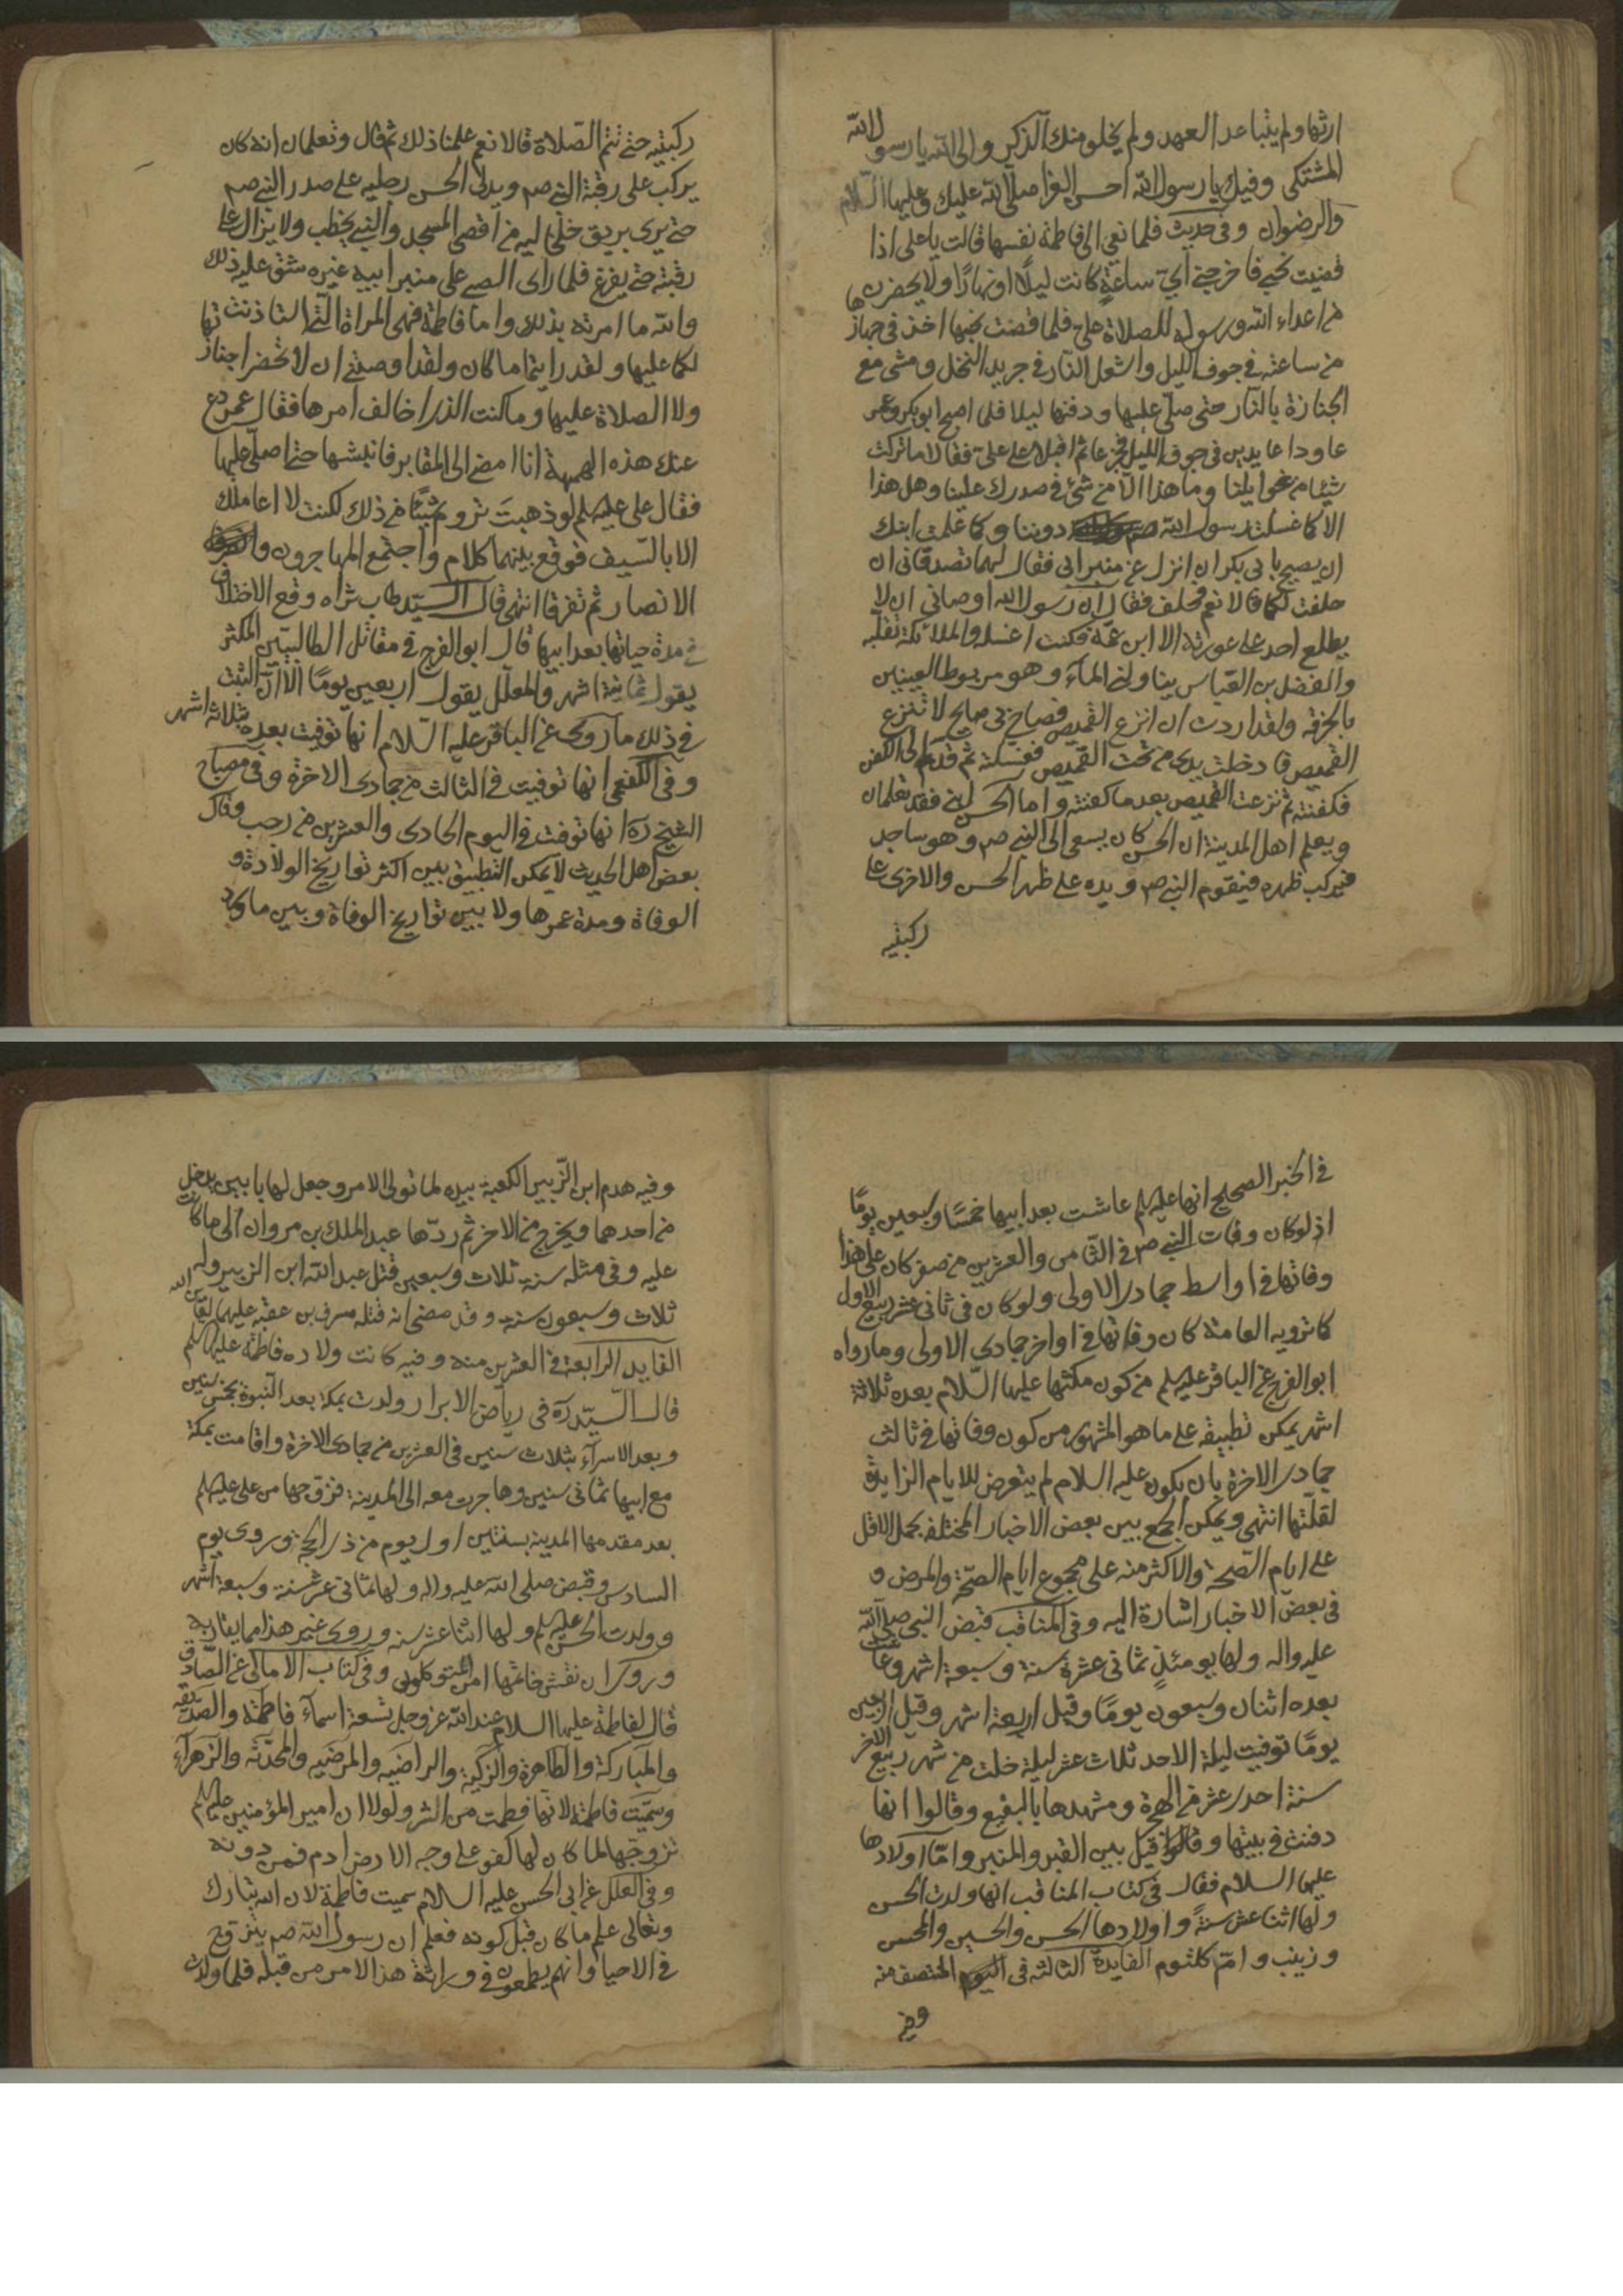 ارثها ولم يتباعد العهد ولم يخلو منك الذكر والى الله يا رسول الله
المشتكى وفيك يا رسول الله احسن العزا صلى الله عليك وعليها السلام
والرضوان وفي حديث فلما نعي الى فاطمة نفسها قالت يا على اذا
قضيت نحبي فاخرجني اي ساعة كانت ليلًا او نهارًا ولا يحضرن
من اعداء الله ورسوله للصلاة على فلما قضت نحبها اخذ في جهازها
من ساعته في جوف الليل واشعل النار في جريد النخل ومشى مع
الجنازة بالنار حتى صلى عليها ودفنها ليلا فلما اصبح ابو بكر وعمر
عاودا عايدين في جوف الليل اقبلا على على فقالا ما تركت
شيئا من وما هذا الا من شئ في صدرك علينا وهل هذا
الا كما غسلت رسول الله صم دوننا وكما علمت ابنك
ان يصيح بابي بكر ان انزل عن منبر ابي فقال لهما تصدقاني ان
حلفت لكما قالا نعم فحلف فقال ان رسول الله اوصاني ان لا
يطلع احد على عورته الا ابن عمه فكنت اغسله والملائكة تقلبه
والفضل بن العباس يناولني المآء وهو مربوط العينين
بالخرقه ولقد اردت ان انزع القميص فصاح بي صايح لا تنزع
القميص فادخلت يدي من تحت القميص فغسلته ثم قدم الى الكفن
فكفنته ثم نزعت القميص بعد ما كفنته واما الحسن ابني فقد تعلمان
ويعلم اهل المدينة ان الحسن كان يسعى الى النبي صم وهو ساجد
فيركب ظهره فيقوم النبي صم ويده على ظهر الحسن والاخرى على
ركبتيه
ركبتيه حتى تتم الصلاة قالا نعم علمنا ذلك ثم قال وتعلمان انه كان
يركب على رقبة النبي صم ويدلى الحسن رجليه على صدر النبي صم
حتى يرى بريق خلخاليه من اقصى المسجد والنبي يخطب ولا يزال على
رقبته حتى يفرغ فلما راى الصبي على منبر ابيه غيره شق عليه ذلك
والله ما امرته بذلك واما فاطمة فهي المراة التي استاذنت
لكما عليها ولقد رايتما ما كان ولقد اوصتني ان لا تحضرا جنازتها
ولا الصلاة عليها وما كنت الذى اخالف امرها فقال عمر دع
عنك هذه الهمهمة انا امضى الى المقابر فانبشها حتى اصلى عليها
فقال على عليه لم لو ذهبت تروم شيئًا من ذلك لكنت لا اعاملك
الا بالسيف فوقع بينهما كلام واجتمع المهاجرون و
الانصار ثم تفرقا انتهى قال السيد طاب ثراه وقع الاختلاف
في مدة حياتها بعد ابيها قال ابو الفرج في مقاتل الطالبيين المكثر
يقول ثمانية اشهر والمعلل يقول اربعين يومًا الا ان الثبت
في ذلك ما روى عن الباقر عليه السلام انها توفيت بعده بثلاثه اشهر
وفي الكفعمي انها توفيت في الثالث من جمادى الاخرة وفي مصباح
الشيخ ره انها توفت في اليوم الحادى والعشرين من رجب وقال
بعض اهل الحديث لا يمكن التطبيق بين اكثر تواريخ الولادة و
الوفاة ومدة عمرها ولا بين تواريخ الوفاة وبين ما ورد
في الخبر الصحيح انها عليها لم عاشت بعد ابيها خمسًا وسبعين يومًا
اذ لو كان وفات النبي صم في الثامن والعشرين من صفر كان على هذا
وفاتها في اواسط جمادى الاولى ولو كان في ثاني عشر ربيع الاول
كما ترويه العامة كان وفاتها في اواخر جمادى الاولى وما رواه
ابو الفرج عن الباقر عليه لم من كون مكثها عليها السلام بعده ثلاثة
اشهر يمكن تطبيقه على ما هو المشهور من كون وفاتها في ثالث
جمادى الاخرة بان يكون عليه السلام لم يتعرض للايام الزايدة
لقلتها انتهى ويمكن الجمع بين بعض الاخبار المختلفه بحمل الاقل
على ايام الصحة والاكثر منه على مجموع ايام الصحة والمرض و
في بعض الاخبار اشارة اليه وفي المناقب قبض النبي صلى الله
عليه واله ولها يومئذٍ ثماني عشرة سنة وسبعة اشهر وعاشت
بعده اثنان وسبعون يومًا وقيل اربعة اشهر وقيل اربعين
يومًا توفيت ليلة الاحد ثلاث عشر ليلة خلت من شهر ربيع الاخر
سنة احدى عشر من الهجرة ومشهدها بالبقيع وقالوا انها
دفنت في بيتها وقالوا قيل بين القبر والمنبر واما اولادها
عليها السلام فقال في كتاب المناقب انها ولدت الحسن
ولها اثنا عشر سنةً واولادها الحسن والحسين والمحسن
وزينب وام كلثوم الفايدة الثالثه في اليوم المنتصف منه
وفيه
وفيه هدم ابن الزبير الكعبة بيده لما تولى الامر وجعل لها بابين يدخل
من احدها ويخرج من الاخر ثم ردها عبد الملك بن مروان الى ما كانت
عليه وفي مثله سنة ثلاث وسبعين قتل عبد الله ابن الزبير وله
ثلاث وسبعون سنة وقد مضى انه قتله مسرف بن عقبه عليهما لعاين الله
الفايده الرابعة في العشرين منه وفيه كانت ولاده فاطمة عليها لم
قال السيد ره في رياض الابرار ولدت بمكة بعد النبوة بخمس سنين
وبعد الاسرآء بثلاث سنين في العشرين من جمادى الاخرة واقامت بمكة
مع ابيها ثماني سنين وهاجرت معه الى المدينة فزوجها من على عليه لم
بعد مقدمها المدينة بسنتين اول يوم من ذى الحجة وروى يوم
السادس وقبض صلى الله عليه واله ولها ثماني عشر سنة وسبعة اشهر
وولدت الحسن عليه لم ولها اثنا عشر سنه وروى غير هذا مما يقاربه
وروى ان نقش خاتمها امن المتوكلون وفي كتاب الامالى عن الصادق
قال لفاطمة عليها السلام عند الله عز وجل تسعة اسمآء فاطمة والصديقه
والمباركة والطاهرة والزكية والراضيه والمرضيه والمحدثة والزهرآء
وسميت فاطمة لانها فطمت من الشر ولولا ان امير المؤمنين عليه لم
تزوجها لما كان لها كفو على وجه الارض ادم فمن دونه
وفي العلل عن ابي الحسن عليه السلام سميت فاطمة لان الله تبارك
وتعالى علم ما كان قبل كونه فعلم ان رسول الله صم يتزوج
في الاحيا وانهم يطمعون في وراثة هذا الامر من قبله فلما ولدت